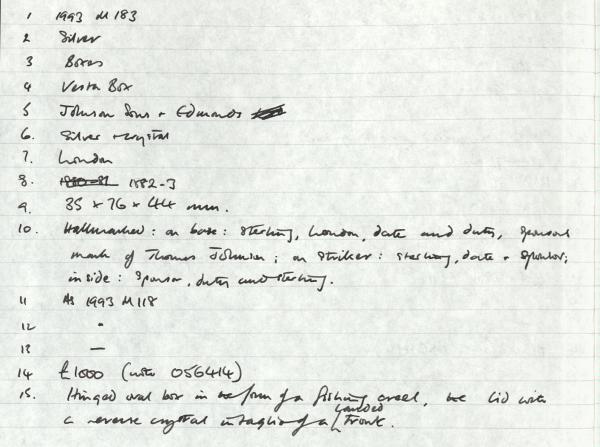 1 1993 M 183
2 Silver
3 Boxes
4 Vesta Box
5 Johnson Sons + Edmonds
6. Silver + crystal
7. London
8. 1880-81 1882-3
9. 35 x 76 x 44 mm.
10. Hallmarked: on base: sterling, London, date and duty, sponsors
mark of Thomas Johnson; on striker: sterling, date + sponsor;
inside: sponsor, duty and sterling.
11 As 1993 M 118
12 "
13 —
14 £1000 (with 056414)
15. Hinged oval box in the form of a fishing creel, the lid with
a reverse crystal intaglio of a landed trout.